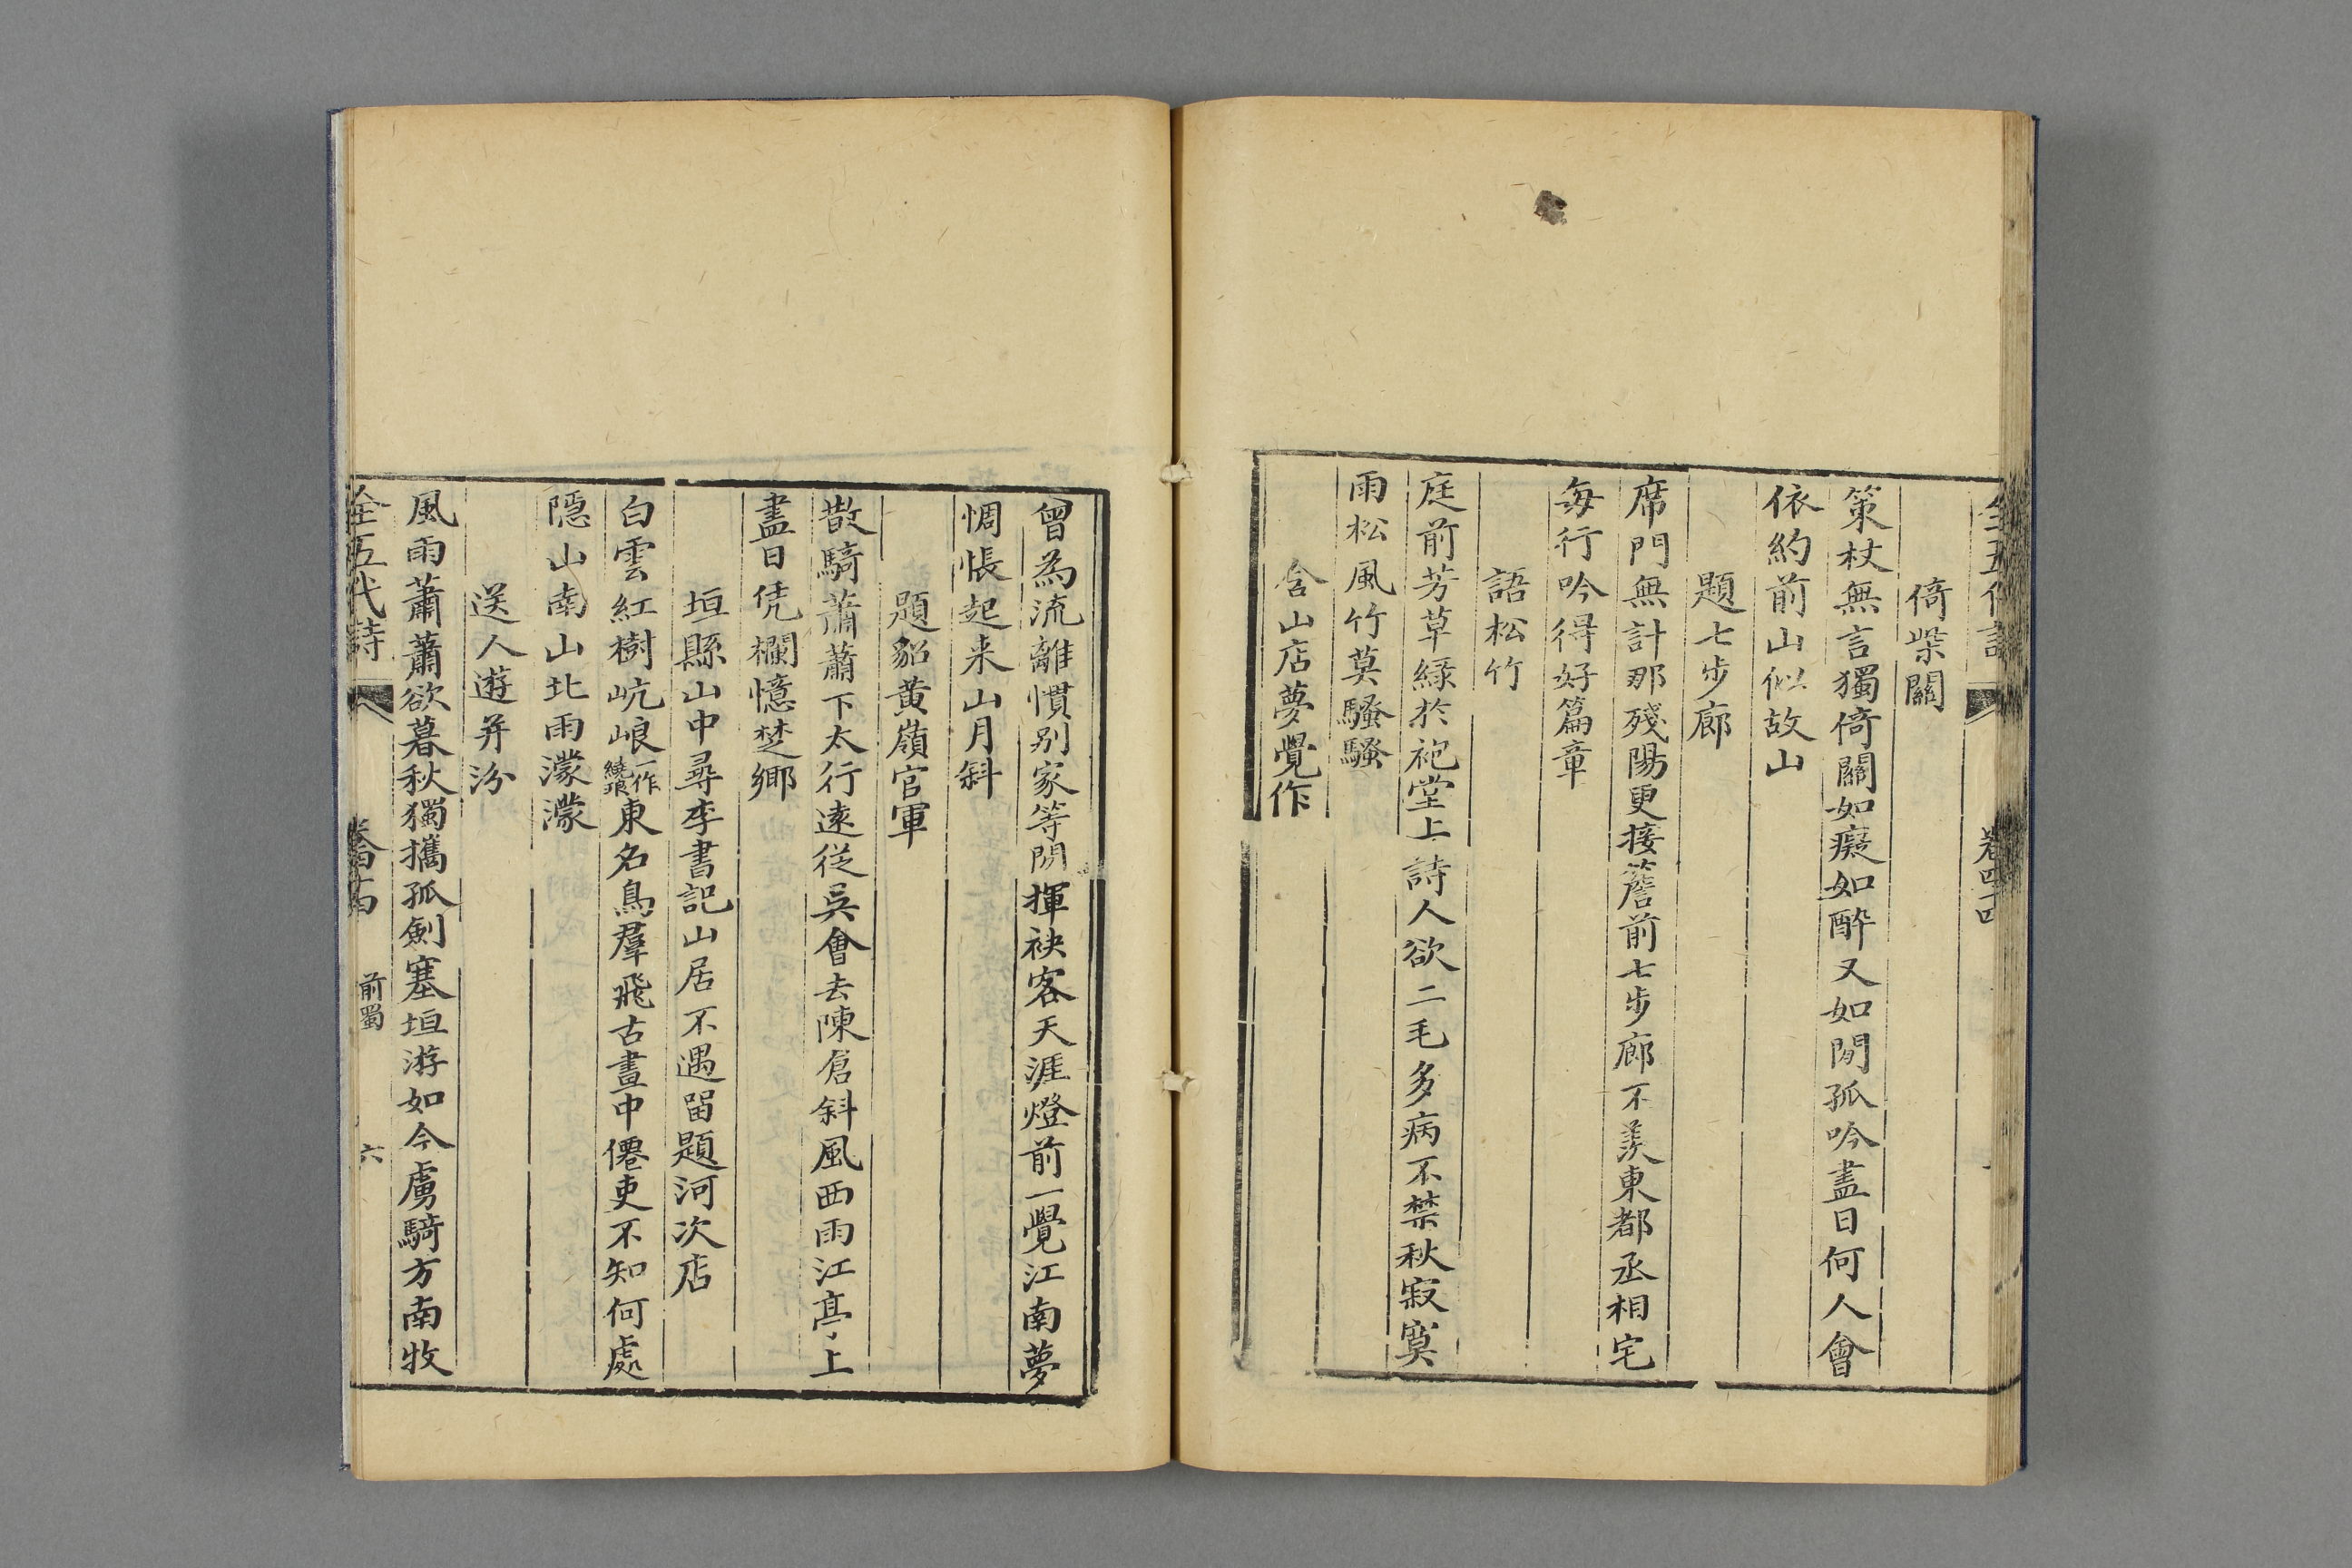 倚柴關
策杖無言獨倚關如癡如醉又如閒孤吟盡日何人會
依約前山似故山
題七步廊
席門無計那殘陽更接簷前七步廊不羨東都丞相宅
每行吟得好篇章
語松竹
庭前芳草緑於袍堂上詩人欲二毛多病不禁秋寂寞
雨松風竹莫騷騷
含山店夢覺作
曾為流離慣别家等閒揮袂客天涯燈前一覺江南夢
惆悵起来山月斜
題貂黄嶺官軍
散騎蕭蕭下太行遠從吳會去陳倉斜風西雨江亭上
盡日凭欄憶楚鄉
垣縣山中尋李書記山居不遇留題河次店
白雲紅樹㟁㟍一作繞垠東名鳥羣飛古畫中僊吏不知何處
隱山南山北雨濛濛
送人遊并汾
風雨蕭蕭欲暮秋獨攜孤劍塞垣游如今虜騎方南牧
全五代詩
前蜀
六